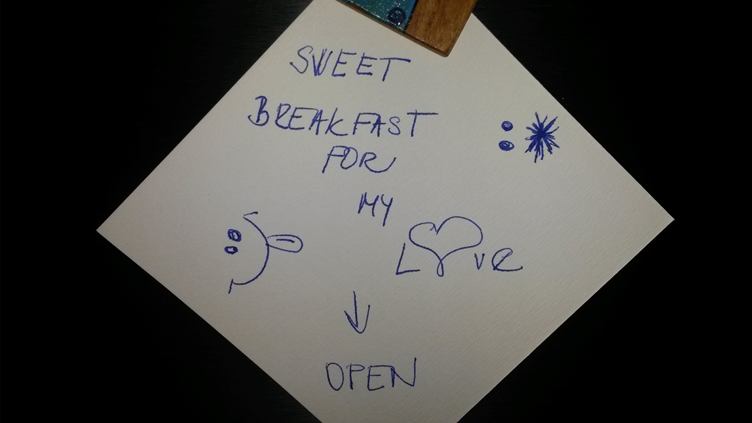 SWEET
BREAKFAST
FOR
MY
LOVE
OPEN